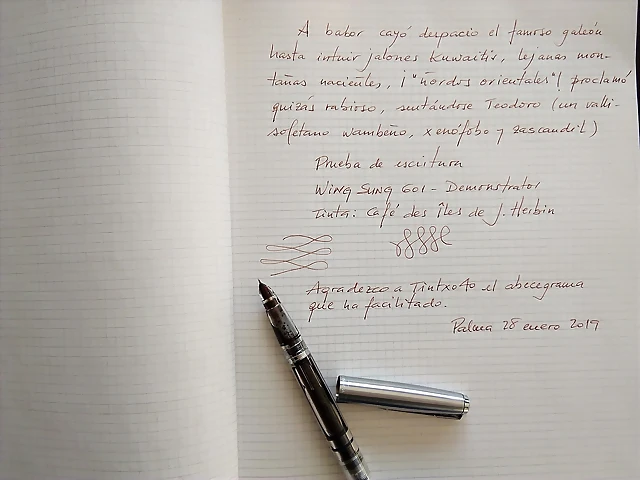 A babor cayó despacio el famoso galeón
hasta intuir jalones kuwaitís, lejanas mon-
tañas nacientes, ¡"ñordos orientales"! proclamó
quizás rabioso, sentándose Teodoro (un valli-
soletano wambeño, xenófobo y zascandil)
Prueba de escritura
Wing Sung 601 - Demonstrator
Tinta: Café des Îles de J. Herbin
Agradezco a Tintxo40 el abecegrama
que ha facilitado.
Palma 28 enero 2019